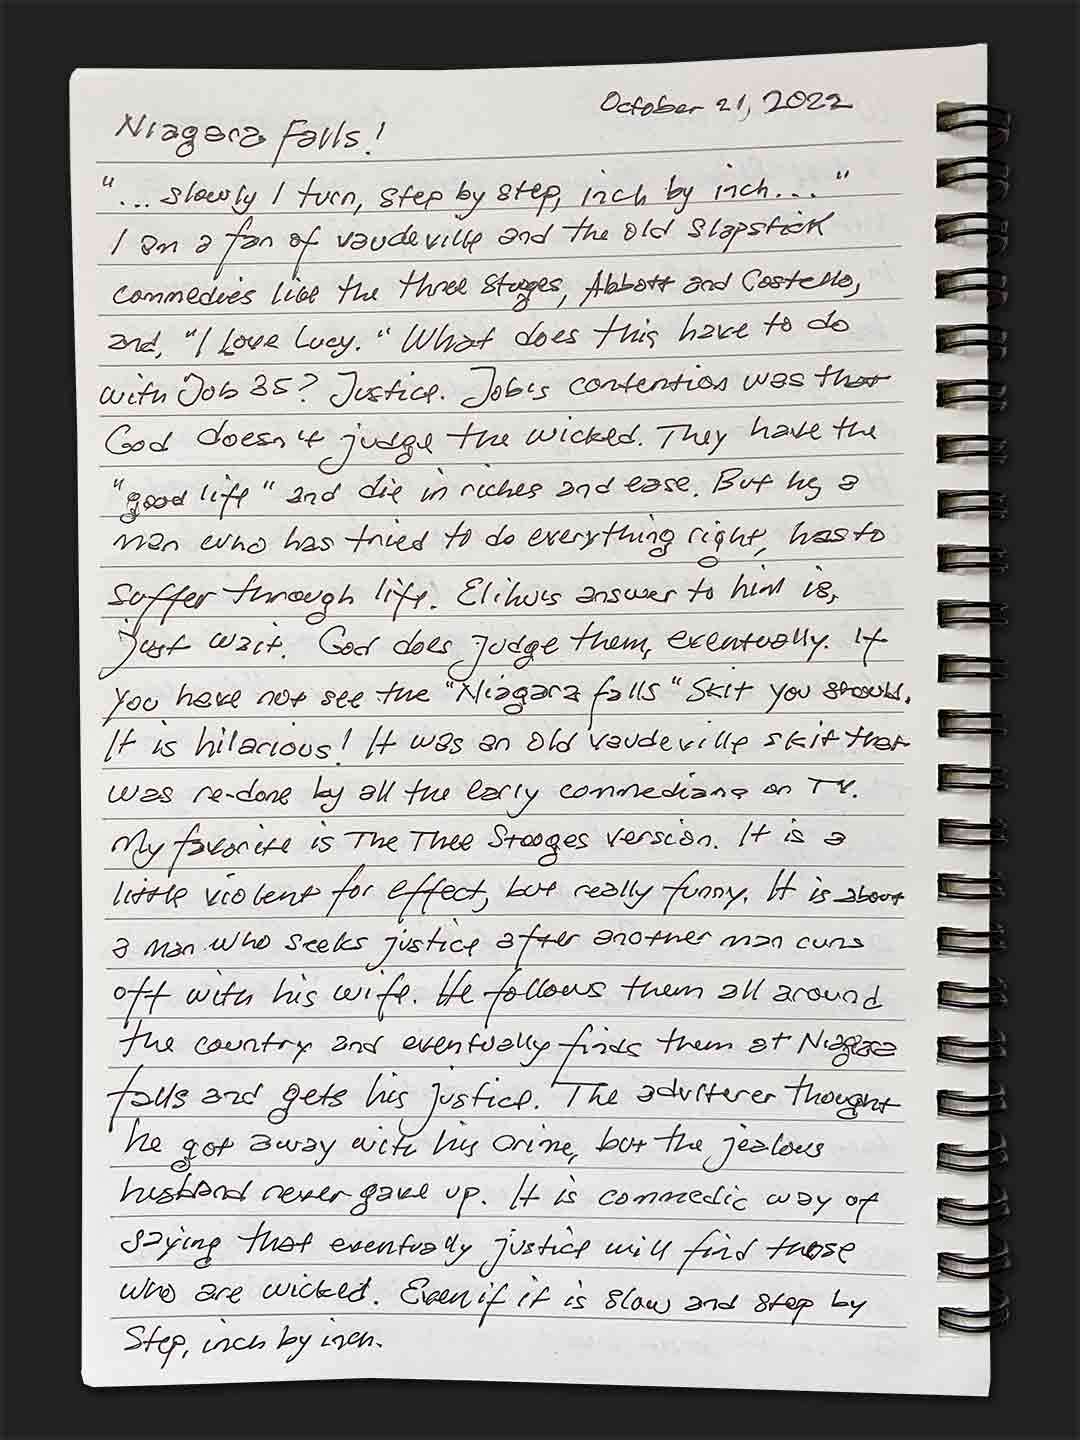 October 21, 2022
Niagara Falls!
"... slowly I turn, step by step, inch by inch..."
I am a fan of vaudeville and the old slapstick
commedies like the three Stooges, Abbott and Costello,
and, "I Love Lucy." What does this have to do
with Job 35? Justice. Job's contention was that
God doesn't judge the wicked. They have the
"good life" and die in riches and ease. But he, a
man who has tried to do everything right, has to
suffer through life. Elihu's answer to him is,
just wait. God does judge them, eventually. If
you have not see the "Niagara falls" Skit you should.
It is hilarious! It was an old vaudeville skit that
was re-done by all the early commedians on TV.
My favorite is The Thee Stooges version. It is a
little violent for effect, but really funny. It is about
a man who seeks justice after another man runs
off with his wife. He follows them all around
the country and eventually finds them at Niagara
falls and gets his justice. The adulterer thought
he got away with his crime, but the jealous
husband never gave up. It is commedic way of
saying that eventually justice will find those
who are wicked. Even if it is slow and step by
step, inch by inch.